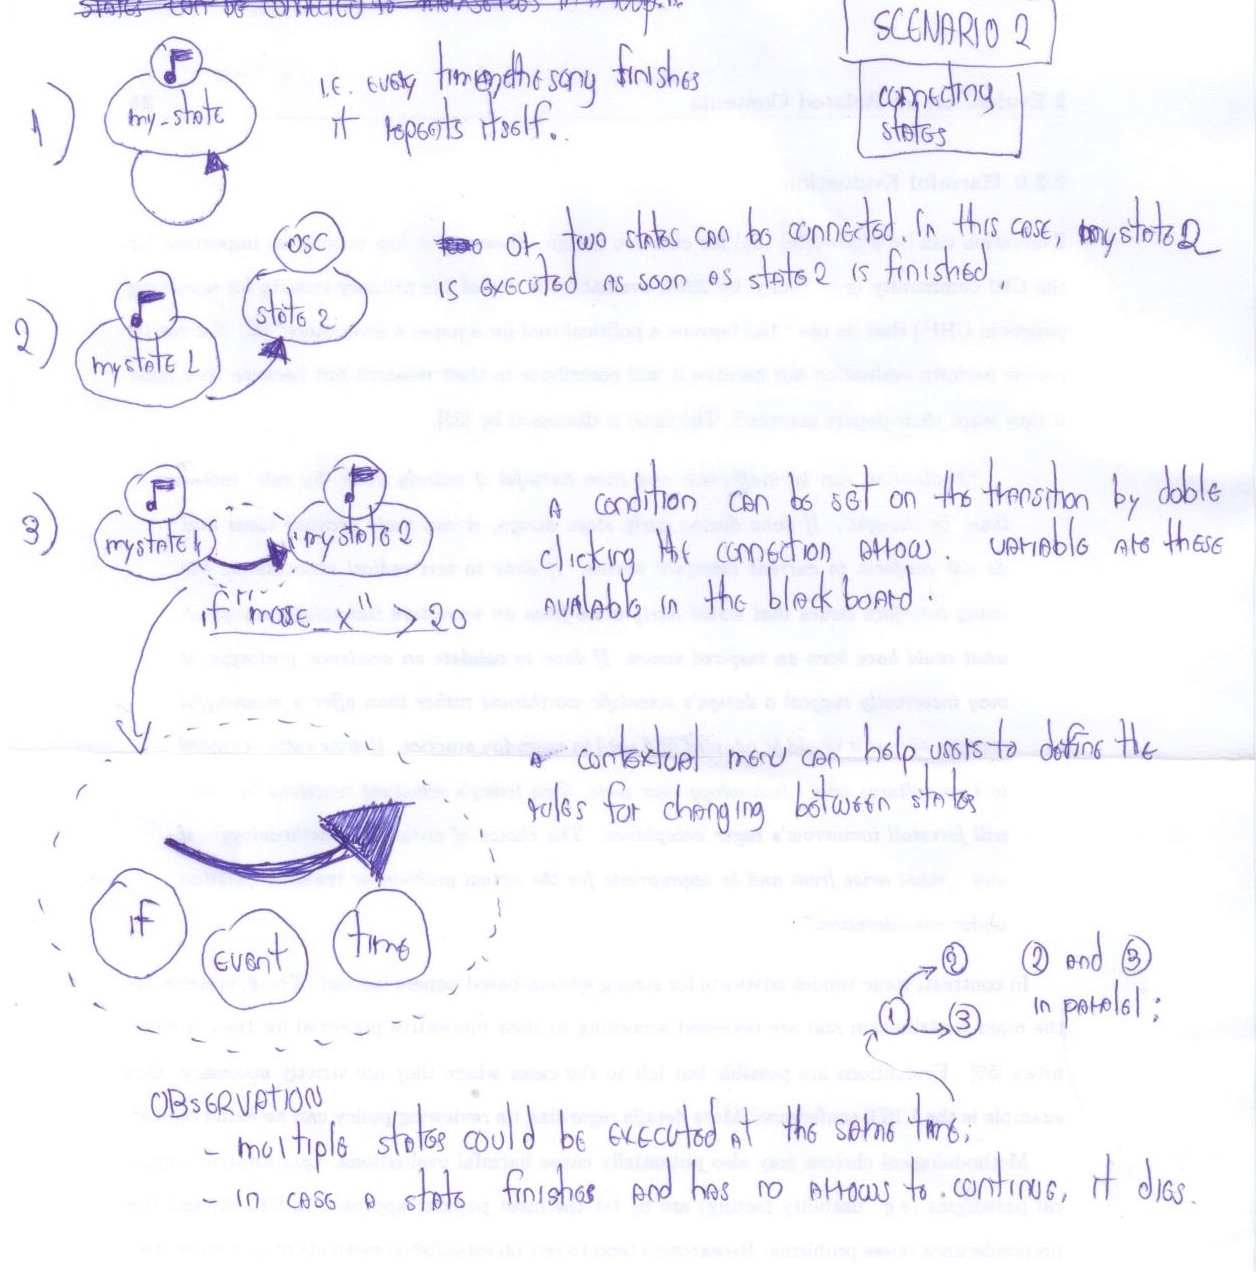 STATES CAN BE CONNECTED TO THEMSELVES IN A loop.
SCENARIO 2
connecting
states
1)
my_state
i.e. every time the song finishes
it repeats itself..
2)
OSC
state 2
mystate 1
or, two states can be connected. In this case, mystate2
is executed as soon as state2 is finished.
3)
mystate1
mystate2
if "mose_x" > 20
A condition can be set on the transition by doble
clicking the connection arrow. variable are these
available in the blackboard.
A contextual menu can help users to define the
rules for changing between states
if
event
time
1
2
3
2 and 3
in paralel;
OBSERVATION
- multiple states could be executed at the same time.
- in case a state finishes and has no arrows to continue, it dies.